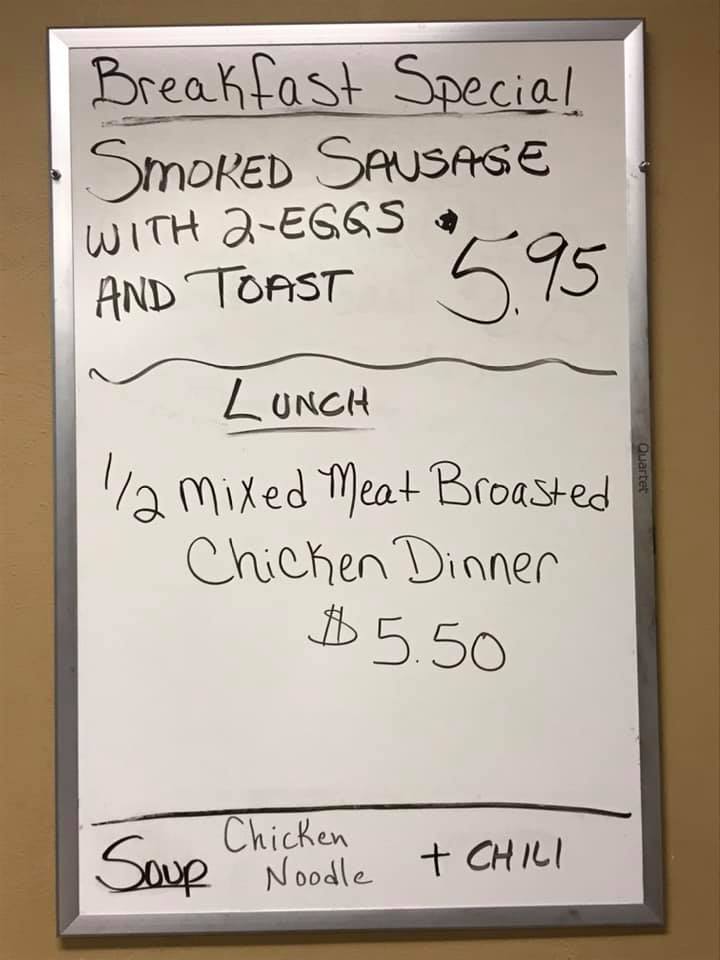 Breakfast Special
SMOKED SAUSAGE
WITH 2-EGGS
AND TOAST $5.95
LUNCH
1/2 Mixed Meat Broasted
Chicken Dinner
$5.50
Soup Chicken Noodle + CHILI
Quartet